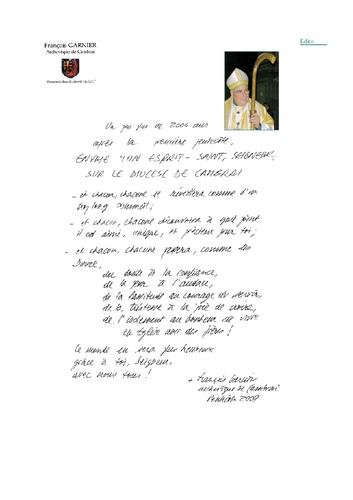 Edito
François GARNIER
Archevêque de Cambrai
Un peu plus de 2000 ans
après la première pentecôte,
ENVOIE TON ESPRIT-SAINT, SEIGNEUR,
SUR LE DIOCESE DE CAMBRAI
- et chacun, chacune se réveillera comme d'un
long sommeil ;
- et chacun, chacune découvrira à quel point
il est aimé, unique, et précieux pour toi ;
- et chacun, chacune passera, comme les
du doute à la confiance,
de la peur à l'audace,
de la au courage de servir,
de la tristesse à la joie de croire,
de l'isolement au bonheur de vivre
en Eglise avec des frères !
Le monde en sera plus heureux
grâce à toi, Seigneur,
avec nous tous !
+ François Garnier
archevêque de Cambrai
Pentecôte 2009